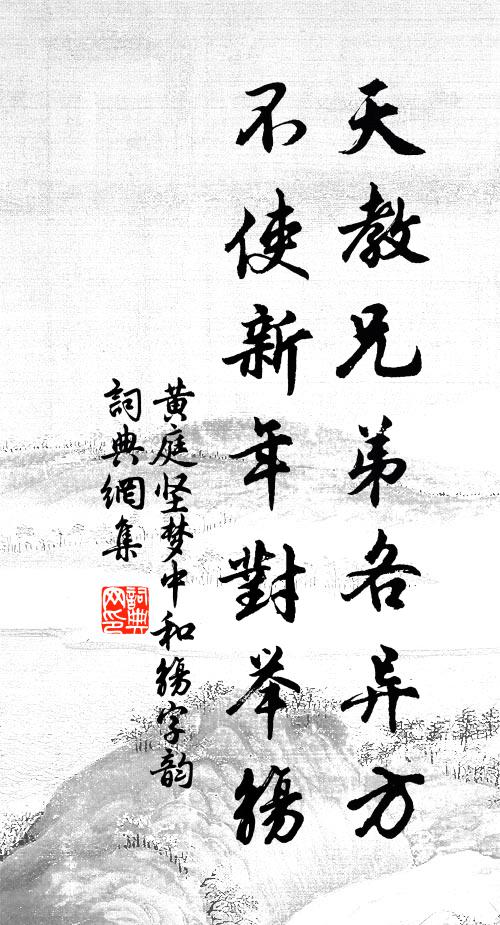 天教兄弟各异方
不使新年對举觴
黄庭坚梦中和觴字韵
詞典網集
詞典网印